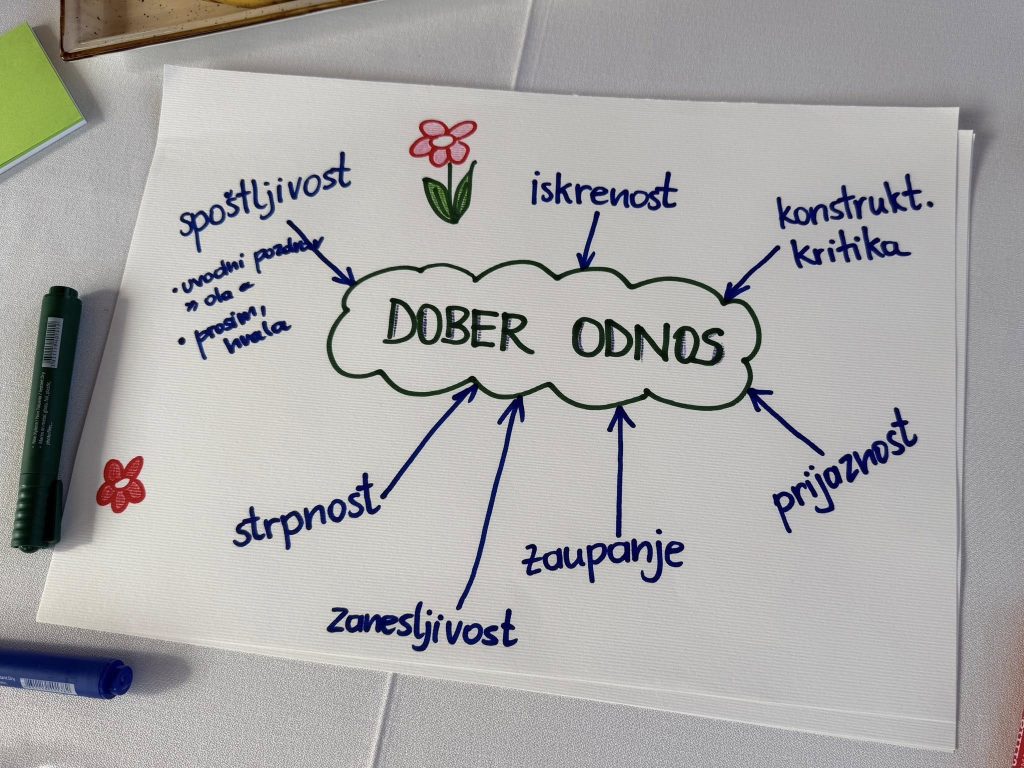 spoštljivost
• uvodni pozdrav
» ola «
• prosim,
hvala
iskrenost
konstrukt.
kritika
DOBER ODNOS
strpnost
zanesljivost
zaupanje
prijaznost